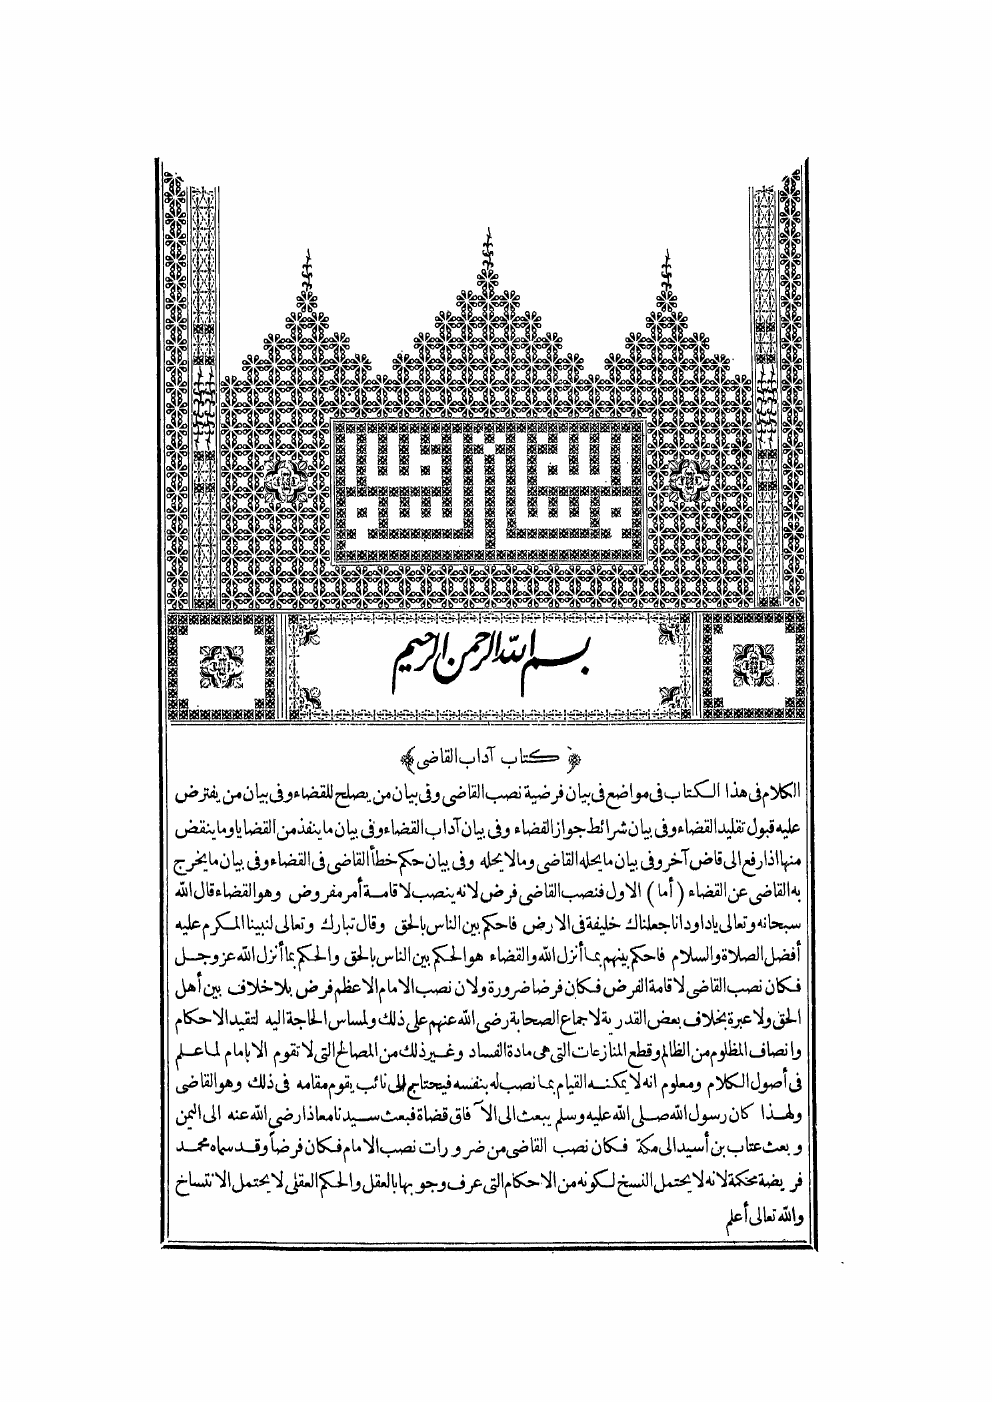 بسم الله الرحمن الرحيم
﴿كتاب آداب القاضى﴾
الكلام فى هذا الكتاب فى مواضع فى بيان فرضية نصب القاضى وفى بيان من يصلح للقضاء وفى بيان من يفترض
عليه قبول تقليد القضاء وفى بيان شرائط جواز القضاء وفى بيان آداب القضاء وفى بيان ما ينفذ من القضايا وما ينقض
منها اذا رفع الى قاض آخر وفى بيان ما يحله القاضى وما لا يحله وفى بيان حكم خطأ القاضى فى القضاء وفى بيان ما يخرج
به القاضى عن القضاء (أما) الاول فنصب القاضى فرض لانه ينصب لاقامة أمر مفروض وهو القضاء قال الله
سبحانه وتعالى ياداود انا جعلناك خليفة فى الارض فاحكم بين الناس بالحق وقال تبارك وتعالى لنبينا المكرم عليه
أفضل الصلاة والسلام فاحكم بينهم بما أنزل الله والقضاء هو الحكم بين الناس بالحق والحكم بما أنزل الله عز وجل
فكان نصب القاضى لاقامة الفرض فكان فرضا ضرورة ولان نصب الامام الاعظم فرض بلا خلاف بين أهل
الحق ولا عبرة بخلاف بعض القدرية لاجماع الصحابة رضى الله عنهم على ذلك ولمساس الحاجة اليه لتقيد الاحكام
وانصاف المظلوم من الظالم وقطع المنازعات التى هى مادة الفساد وغير ذلك من المصالح التى لا تقوم الا بامام لما علم
فى أصول الكلام ومعلوم انه لا يمكنه القيام بما نصب له بنفسه فيحتاج الى نائب يقوم مقامه فى ذلك وهو القاضى
ولهذا كان رسول الله صلى الله عليه وسلم يبعث الى الآفاق قضاة فبعث سيدنا معاذا رضى الله عنه الى اليمن
وبعث عتاب بن أسيد الى مكة فكان نصب القاضى من ضرورات نصب الامام فكان فرضاً وقد سماه محمد
فريضة محكمة لانه لا يحتمل النسخ لكونه من الاحكام التى عرف وجوبها بالعقل والحكم العقلى لا يحتمل الانتساخ
والله تعالى أعلم